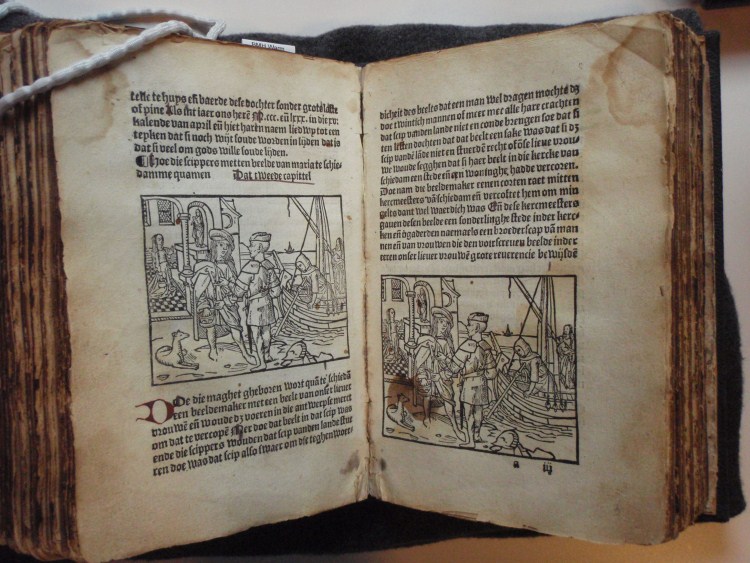 telic te huys eñ baerde dese dochter sonder grote
of pine Als schr iaer ons herẽ M.ccc. eñ lxxx. in die xv.
kalende van april eñ hiet haren naem liedwÿ tot een
teyken dat si noch wijt soude worden in lijden dat is
dat si veel om gods wille soude lijden.
¶ Hoe die scippers metten beelde van maria te schie-
damme quamen Dat tweede capittel
DOe die maghet gheboren wort quã te schiedã
een beeldemaker met een beelt van onser liever
vrouwẽ eñ woude dz voeren in die antwerpsemert
om dat te vercopẽ Mer doe dat beelt in dat scip was
ende die scippers wouden dat scip vanden lande stie-
ren doe was dat scip also swaer om die teghenwor-
dicheit des beelts dat een man wel dragen mochte dz
doe twintich mannen of meer met alle hare crachten
dat scip vanden lande niet en conde brengen soe dat si
ten lesten dochten dat dat beelt een sake was dat si dz
scip vandẽ lãde niet en stuerdẽ recht of õse lieue vrou-
we woude segghen dat si haer beelt in die kercke van
schiedam en stede eñ een woninghe hadde vercoren.
Dot nam die beeldemaker enen corten raet mitten
kercmeesters vã schiedam eñ vercoftet hem om min
gelts dant wel waerdich was Eñ dese kercmeesters
gauen desen beelde een sonderlinghe stede inder kerc-
ken eñ ogaderden naemaels een broederscap vã man
nen eñ van vrouwen die den voirscreuen beelde inder
eren onser lieuer vrouwẽ grote reuerencie bewijsdẽ
a iij